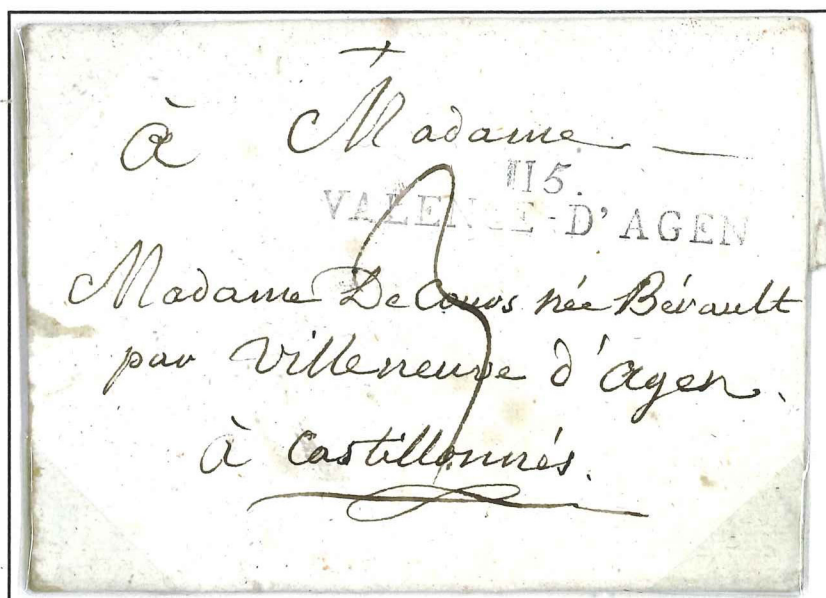 à Madame
115.
VALENCE-D'AGEN
3
Madame De Cours née Bérault
par Villeneuve d'agen.
à Castillonnés.